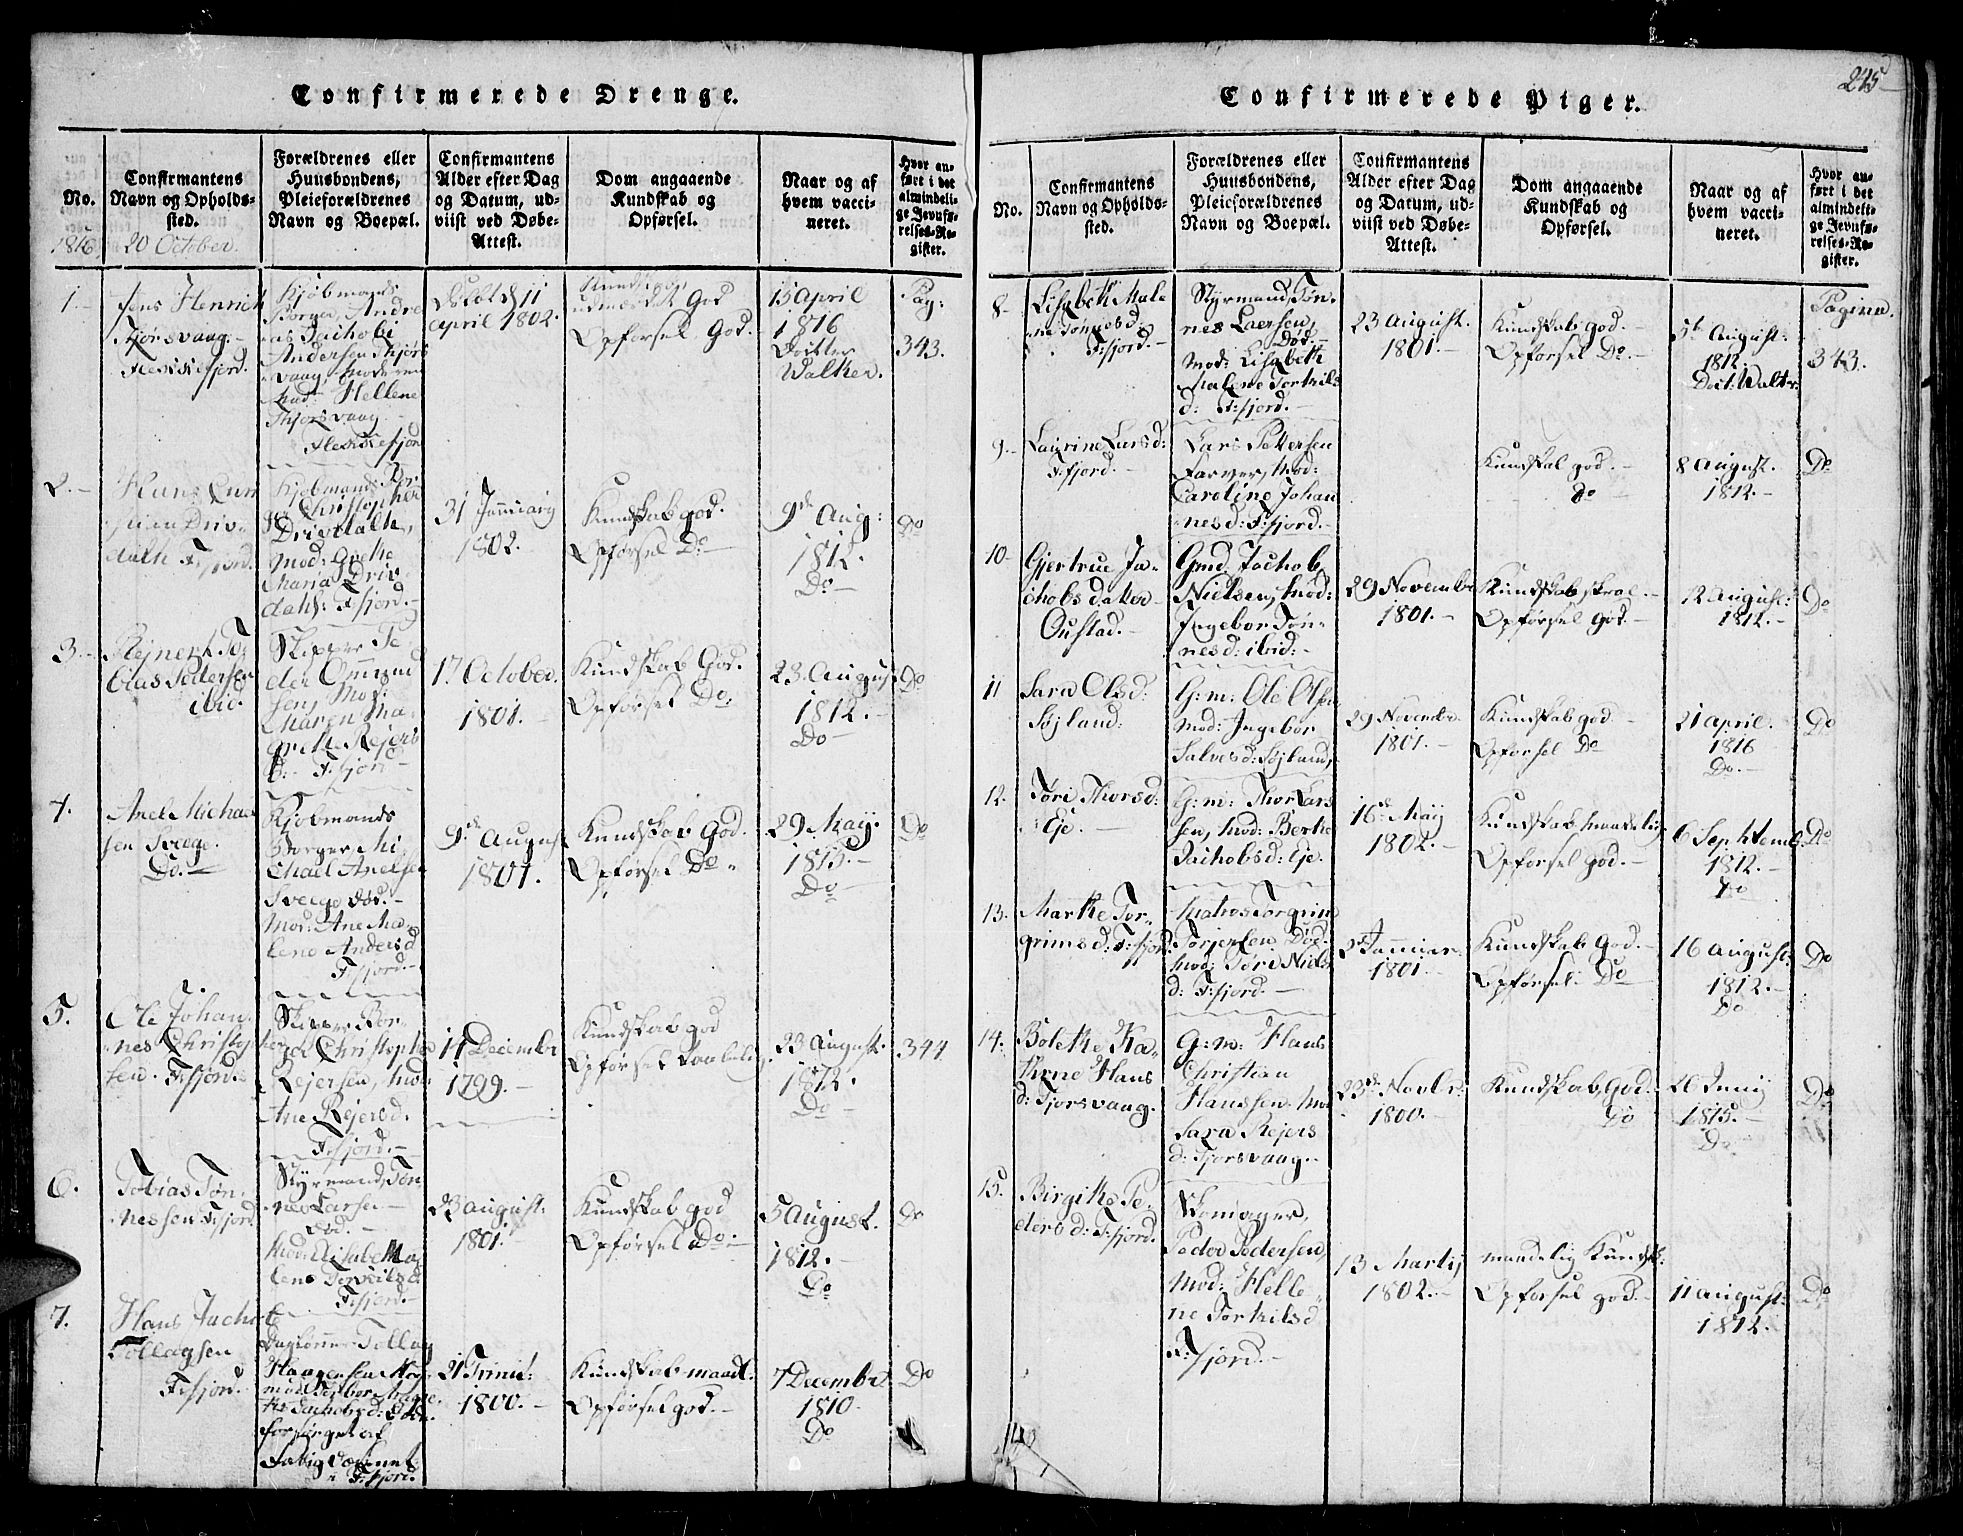 Confirmerede Drenge.
No.
Confirmantens
Navn og Opholds-
sted.
Forældrenes eller
Huusbondens,
Pleieforældrenes
Navn og Boepæl.
Confirmantens
Alder efter Dag
og Datum, ud-
viist ved Døbe-
Attest.
Dom angaaende
Kundskab og
Opførsel.
Naar og af
hvem vacci-
neret.
Hvor an-
ført i det
almindeli-
ge Jevnfø-
relses-Re-
gister.
1816 20 October.
1.
Jens Henrich
Tjørsvaag.
Flekkefjord.
Kjøbmands
Borger, Andre
as Jachobi
Andersen Thjørs
vaag, Moderen
Mad Hellene
Thjorsvaag
Flekkefjord
Døbt d 11
April 1802.
Kundskab
udmærket God
Opførsel God.
15 April
1816
Docter
Walker.
Pag:
343.
2.
Hans
Driv-
dahl F:fjord.
Kjøbmands Bor-
ger Christopher
Drivdahl,
Mod: Grethe
Maria Driv
dahl: F:fjord.
31 Januarij
1802.
Kundskab god.
Opførsel Do
9de Aug:
1812.
Do
Do
3.
Rejnert To-
bias Pedersen
ibid.
Skipper Pe
der Ommund
sen, Mod:
Maren Ma-
grethe Rejers
d: F:fjord
17 October.
1801.
Kundskab God.
Opførsel Do.
23 August
1812.
Do
Do
4.
Anel Michael
sen Svege.
Do.
Kjøbmands
Borger Mi-
chael Anelsen
Svege død.
Mod: Ane Ma-
lene Andersd
F:fjord.
9de August
1801.
Kundskab God.
Opførsel Do
29 Maij.
1815.
Do
Do
5.
Ole Johan
nes Christop
hersen. F:fjord.
Skipper Bor-
ger Christopher
Rejersen, Mod:
Ane Rejersd:
F:fjord.
14 December
1799.
Kundskab god
Opførsel
23 August.
1812.
Do
344
6.
Tobias Tøn-
nessen F:fjord.
Styrmand, Tøn
nes Larsen
død.
Mod: Elisabe Ma
lene Torkilsd
F:fjord.
23 August:
1801.
Kundskab god
Opførsel Do.
5 August.
1812.
Do
Do
7.
Hans Jachob
Tollagsen
F:fjord.
Daglønner Tollag
Haagensen
forsørget af
Fattigvæsenet
i F:fjord.
21 Trinit:
1800.
Kundskab maadl:
Opførsel god.
7 Decembr.
1810
Do
Do
Confirmerede Piger.
245
No.
Confirmantens
Navn og Opholds-
sted.
Forældrenes eller
Huusbondens,
Pleieforældrenes
Navn og Boepæl.
Confirmantens
Alder efter Dag
og Datum, ud-
viist ved Døbe-
Attest.
Dom angaaende
Kundskab og
Opførsel.
Naar og af
hvem vacci-
neret.
Hvor an-
ført i det
almindeli-
ge Jevnfø-
relses-Re-
gister.
8
Elisabeth Male
ne Tønnesd:
F:fjord.
Styrmand, Tøn-
nes Laersen,
Død.
Mod: Elisabeth
Malene Torkils
d: F:fjord.
23 August.
1801.
Kundskab god.
Opførsel Do.
5te August:
1812.
Doct: Walker
Pagina.
343.
9.
Laurine Larsd:
F:fjord.
Lars Pettersen
Farver, Mod:
Caroline Johan
nesd: F:fjord.
Kundskab god.
do
8 August.
1812.
Do
10
Gjertrue Ja-
chobsdatter
Oustad.
Gmd Jachob
Nielsen, Mod:
Ingebor Tøn-
nesd: ibid:
29 Novembr
1801.
Kundskab skral.
Opførsel God.
12 August:
1812.
Do
11
Sara Olsd:
Søjland:
G:m: Ole Olsen
Mod: Ingebor
Salvesd: Søjland,
29 Novembr.
1801.
Kundskab god
Opførsel Do
21 April.
1816
Do.
Do
12.
Tøri Thorsd:
Eje.
G:m: Thor Lars
sen, Mod: Berthe
Jachobsd: Eje.
16de Maij
1802.
Kundskab maadelig
Opførsel god.
6 Septemb.
1812.
Do
Do
13.
Marthe Tor-
grimsd: F:fjord.
Matros Torgrim
Torjersen Død.
Mod: Tøri Niels
d: F:fjord.
Januar
1801.
Kundskab God.
Opførsel. Do
16 August:
1812.
Do
Do
14.
Bolette Ka-
thrne Hans
d: Tjorsvaag.
G:m: Hans
Christian
Hanssen. Mo
Sara Rejers
d: Tjorsvaag.
23de Novbr:
1800.
Kundskab God.
Do
26 Junij
1815.
Do
Do
15.
Birgitte Pe-
dersd: F:fjord.
Skomager,
Peder Pedersen,
Mod: Helle-
ne Torkilsd
F:fjord.
13 Martij
1802.
maadelig Kundsk:
Opførsel god.
11 August:
1812.
Do